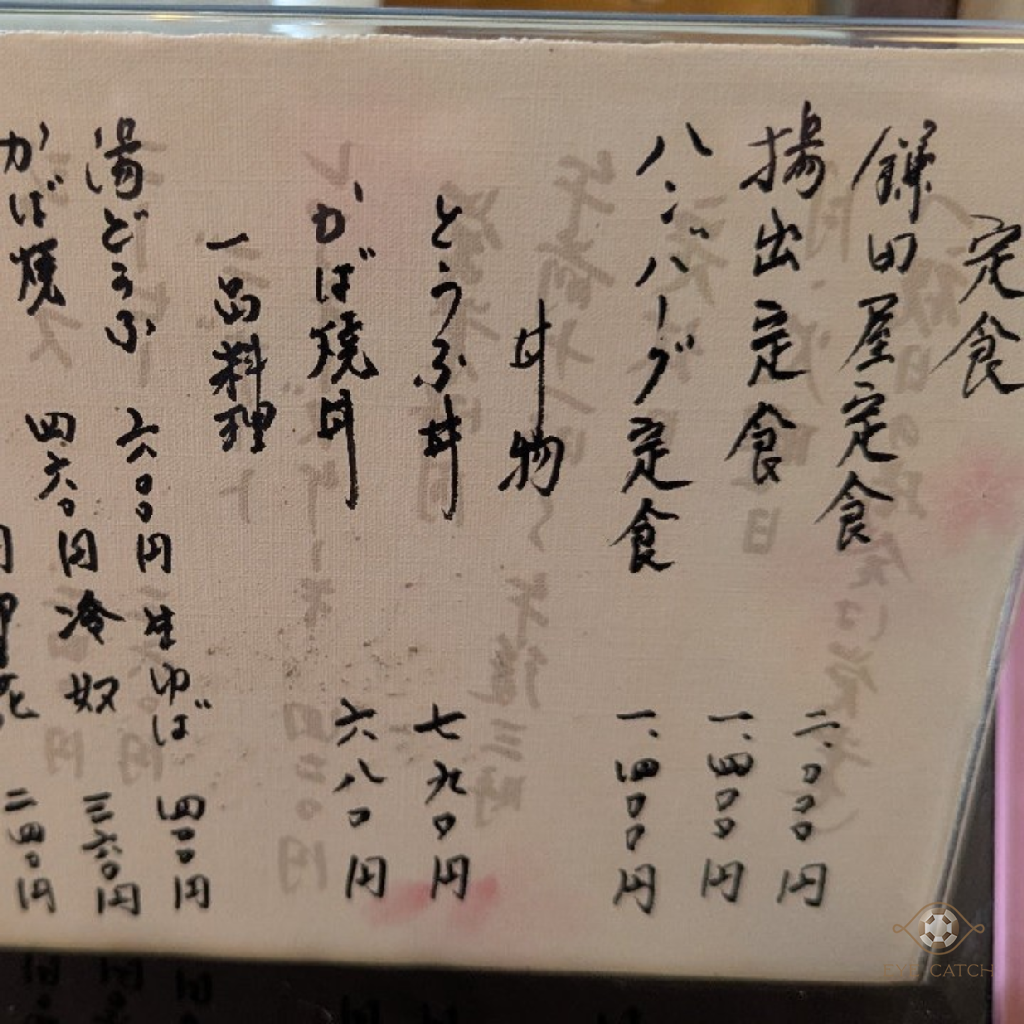 定食
鎌田屋定食 二、〇〇〇円
揚出定食 一、四〇〇円
ハンバーグ定食 一、四〇〇円
丼物
とうふ丼 七九〇円
かば焼丼 六八〇円
一品料理
湯どうふ 六〇〇円 生ゆば 四〇〇円
かば焼 四六〇円 冷奴 三六〇円
円 卯花 二四〇円
EYE CATCH